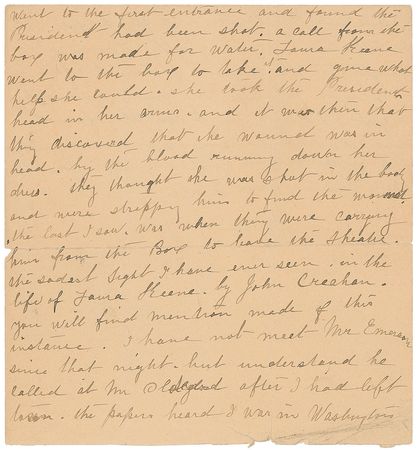 went to the first entrance and found the
President had been shot. a call from the
box was made for water, Laura Keene
went to the box to take it and give what
help she could. she took the Presidents
head in her arms. and it was then that
they discoved that the wound was in
head. by the blood running down her
dress. they thought he was shot in the body
and were stripping him to find the wound
the last I saw. was when they were carrying
him from the Box to leave the theatre.
the sadest sight I have ever seen. in the
life of Laura Keene. by John Creahan.
you will find mention made of this
instance. I have not meet Mr Emerson
since that night. but understand he
called at Mr after I had left
town. the papers heard I was in Washington